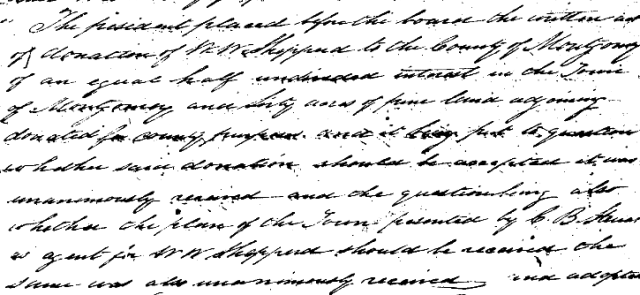 The president placed before the board the written act
of donation of W W Shepperd to the County of Montgomery
of an equal half undivided interest in the Town
of Montgomery and sixty acres of pine land adjoining
donated for county purposes and it being put to question
whether said donation should be accepted it was
unanimously received and the question being also
whether the plan of the Town presented by C. B. Stewart
as agent for W W Shepperd should be received the
same was also unanimously received and adopted